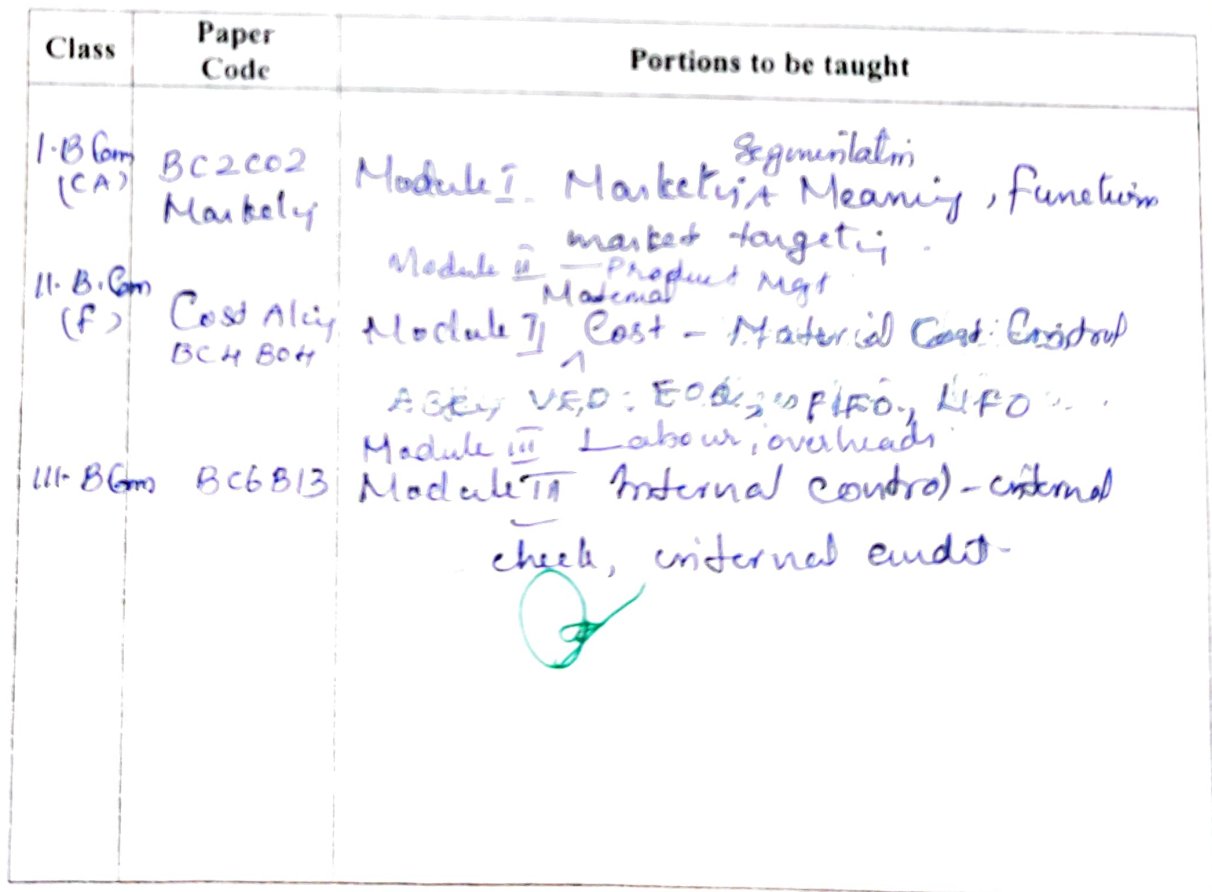 Class Paper Code Portions to be taught
I·B Com BC2C02 Module I. Marketing Meaning, function
Segmentation
(CA) Marketing market targeting.
Module II — Product Mgt
II. B.Com Cost A/cing Module II Material Cost - Material Cost Control
(F) BC4B04 VED, EOQ, FIFO, LIFO ...
Module III Labour, overheads
III- BCom BC6B13 Module III Internal control - internal
check, internal audit-